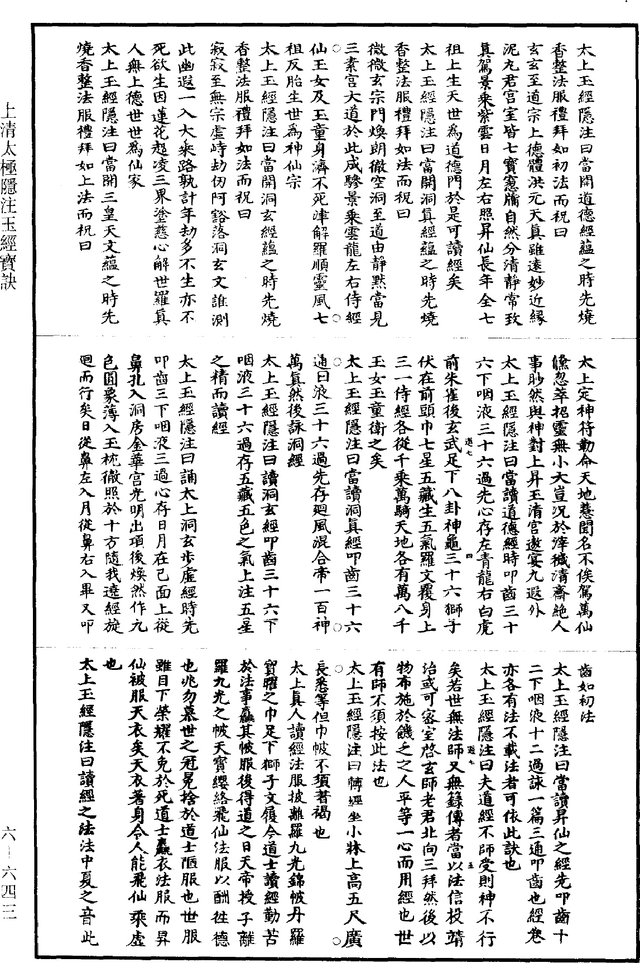 太上玉經隱注曰當開道德經蘊之時先燒
香整法服禮拜如初法而祝曰
玄玄至道宗上德體洪元天真雖遠妙近緣
泥丸君宮室皆七寶窻牖自然分清静常致
真駕景乘紫雲日月左右照昇仙長年全七
祖上生天世為道德門於是可讀經矣
太上玉經隱注曰當開洞真經蘊之時先燒
香整法服禮拜如法而祝曰
微微玄宗門煥朗徹空洞至道由静默當見
三素宮大道於此成驂景乘雲龍左右侍經
仙玉女及玉童身濟不死津解羅順靈風七
祖反胎生世為神仙宗
太上玉經隱注曰當開洞玄經蘊之時先燒
香整法服禮拜如法而祝曰
寂寂至無宗虛峙劫仞阿豁落洞玄文誰測
此幽遐一入大乘路孰計年劫多不生亦不
死欲生因蓮花超凌三界塗慈心解世羅真
人無上德世世為仙家
太上玉經隱注曰當開三皇天文蘊之時先
燒香整法服禮拜如上法而祝曰
太上定神符勑命天地慧聞名不俟駕萬仙
儵忽萃招靈無小大豈況於滓穢清齋絕人
事眇然與神對上昇玉清宮遨宴九遐外
太上玉經隱注曰當讀道德經時叩齒三十
六下咽液三十六過先心存左青龍右白虎
前朱雀後玄武足下八卦神龜三十六獅子
伏在前頭巾七星五藏生五氣羅文覆身上
三一侍經各從千乘萬騎天地各有萬八千
玉女玉童衛之矣
太上玉經隱注曰當讀洞真經叩齒三十六
通咽液三十六過先存迴風混合帝一百神
萬真然後詠洞經
太上玉經隱注曰讀洞玄經叩齒三十六下
咽液三十六過存五藏五色之氣上注五星
之精而讀經
太上玉經隱注曰誦太上洞玄步虛經時先
叩齒三下咽液三過心存日月在己面上從
鼻孔入洞房金華宮光明出項後煥然作九
色圓象薄入玉枕徹照於十方隨我遶經旋
迴而行矣日從鼻左入月從鼻右入畢又叩
齒如初法
太上玉經隱注曰當讀昇仙之經先叩齒十
二下咽液十二過詠一篇三通叩齒也經卷
亦各有法不載法者可依此訣也
太上玉經隱注曰夫道經不師受則神不行
矣若世無法師又無籙傳者當以法信投靖
治或可密室啓玄師老君北向三拜然後以
物布施於饑乏之人平等一心而用經也世
有師不須按此法也
太上玉經隱注曰轉經坐小牀上高五尺廣
長悉等但巾帔不須著褐也
太上真人讀經法服披離羅九光錦帔丹羅
寶曜之巾足下獅子文履今道士讀經勤苦
於法事麤其帔服後得道之日天帝授子離
羅九光之帔天寶纓絡飛仙法服以酬往德
也兆勿慕世之冠冕捨於道士陋服也世服
雖目下榮耀不免於死道士麤衣法服而昇
仙被服天衣矣天衣著身令人能飛仙乘虛
也
太上玉經隱注曰讀經之法法中夏之音此
上清太極隱注玉經寶訣
六－六四三